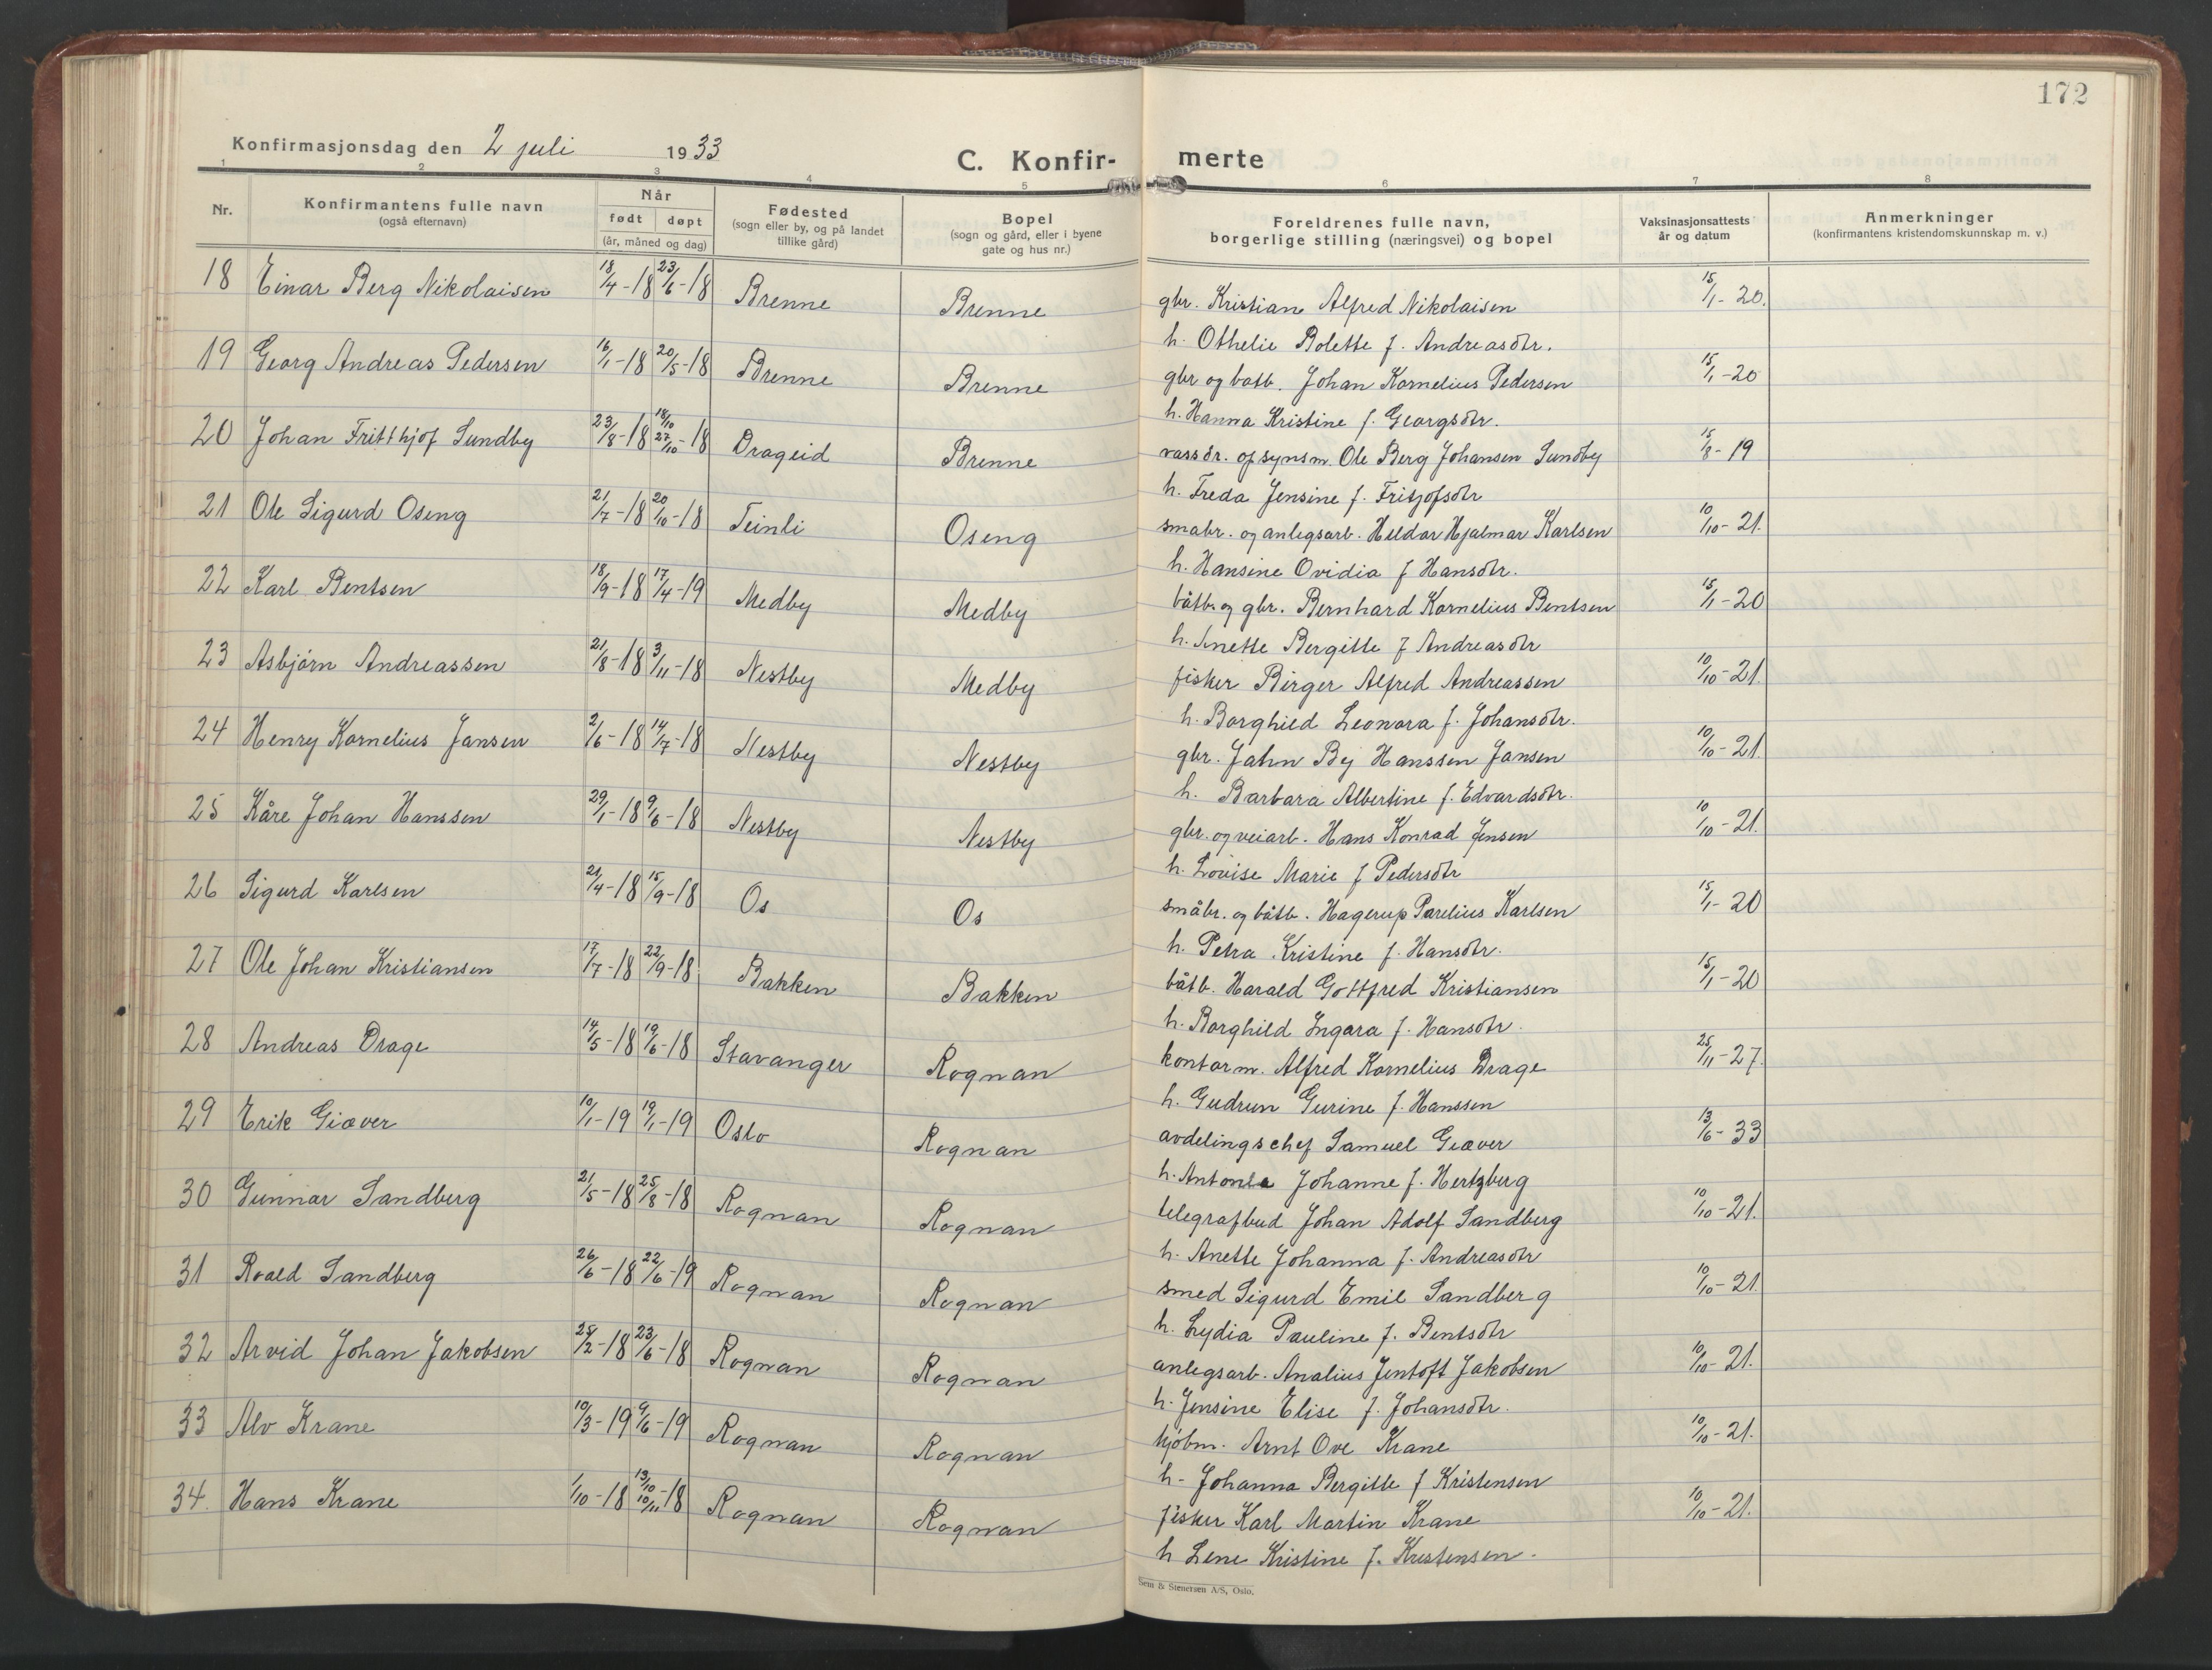 172
Konfirmasjonsdag den 2 juli 1933
C. Konfir- merte
1 2 3 4 5 6 7 8
Nr.
Konfirmantens fulle navn
(også efternavn)
Når
født døpt
(år, måned og dag)
Fødested
(sogn eller by, og på landet
tillike gård)
Bopel
(sogn og gård, eller i byene
gate og hus nr.)
Foreldrenes fulle navn,
borgerlige stilling (næringsvei) og bopel
Vaksinasjonsattests
år og datum
Anmerkninger
(konfirmantens kristendomskunnskap m. v.)
18 Einar Berg Nikolaisen 18/4-18 23/6-18 Brenne Brenne gbr. Kristian Alfred Nikolaisen 15/1-20.
h. Othelie Bolette f. Andreasdtr.
19 Georg Andreas Pedersen 16/1-18 20/5-18 Brenne Brenne gbr og baatb. Johan Kornelius Pedersen 15/1-20
h. Hanna Kristine f. Georgsdtr.
20 Johan Fritthjof Sundby 23/8-18 18/10 27/10-18 Drageid Brenne vassdr. opsynsm. Ole Berg Johansen Sundby 15/8-19
h. Freda Jensine f. Fritjofsdtr
21 Ole Sigurd Oseng 21/7-18 20/10-18 Teinli Oseng smabr. og anlegsarb. Heldor Hjalmar Karlsen 10/10-21.
h. Hansine Ovidia f Hansdtr.
22 Karl Bentsen 18/9-18 17/4-19 Medby Medby båtb. og gbr. Bernhard Kornelius Bentsen 15/1-20
h. Anette Bergitte f Andreasdtr
23 Asbjörn Andreassen 21/8-18 3/11-18 Nestby Medby fisker Birger Alfred Andreassen 10/10-21.
h. Borghild Leonora f. Johansdtr.
24 Henry Kornelius Jansen 2/6-18 14/7-18 Nestby Nestby gbr. Jahn Bej Hanssen Jansen 10/10-21.
h. Barbara Albertine f. Edvardsdtr.
25 Kåre Johan Hanssen 29/1-18 9/6-18 Nestby Nestby gbr. og veiarb. Hans Konrad Jensen 10/10-21.
h. Lovise Marie f Pedersdtr
26 Sigurd Karlsen 21/4-18 15/9-18 Os Os småbr. og båtb. Hagerup Parelius Karlsen 15/1-20
h. Petra Kristine f. Hansdtr.
27 Ole Johan Kristiansen 17/7-18 22/9-18 Bakken Bakken båtb. Harald Gottfred Kristiansen 15/1-20
h. Borghild Ingara f. Hansdtr.
28 Andreas Drage 14/5-18 19/6-18 Stavanger Rognan kontorm. Alfred Kornelius Drage 25/11-27.
h. Gudrun Gurine f. Hanssen
29 Erik Giæver 10/1-19 19/1-19 Oslo Rognan avdelingschef Samuel Giæver 13/6-33
h. Antonie Johanne f. Hertzberg
30 Gunnar Sandberg 21/5-18 25/8-18 Rognan Rognan telegrafbud Johan Adolf Sandberg 10/10-21.
h. Anette Johanna f. Andreasdtr
31 Roald Sandberg 26/6-18 22/6-19 Rognan Rognan smed Sigurd Emil Sandberg 10/10-21.
h. Lydia Pauline f. Bentsdtr
32 Arvid Johan Jakobsen 25/2-18 23/6-18 Rognan Rognan anlegsarb. Analius Jentoft Jakobsen 10/10-21.
h. Jensine Elise f. Johansdtr.
33 Alv Krane 10/3-19 9/6-19 Rognan Rognan kjöbm. Arnt Ove Krane 10/10-21.
h- Johanna Bergitte f Kristensen
34. Hans Krane 1/10-18 13/10 10/11-18 Rognan Rognan fisker Karl Martin Krane 10/10-21.
h Lene Kristine f. Kristensen.
Sem & Stenersen A/S, Oslo.